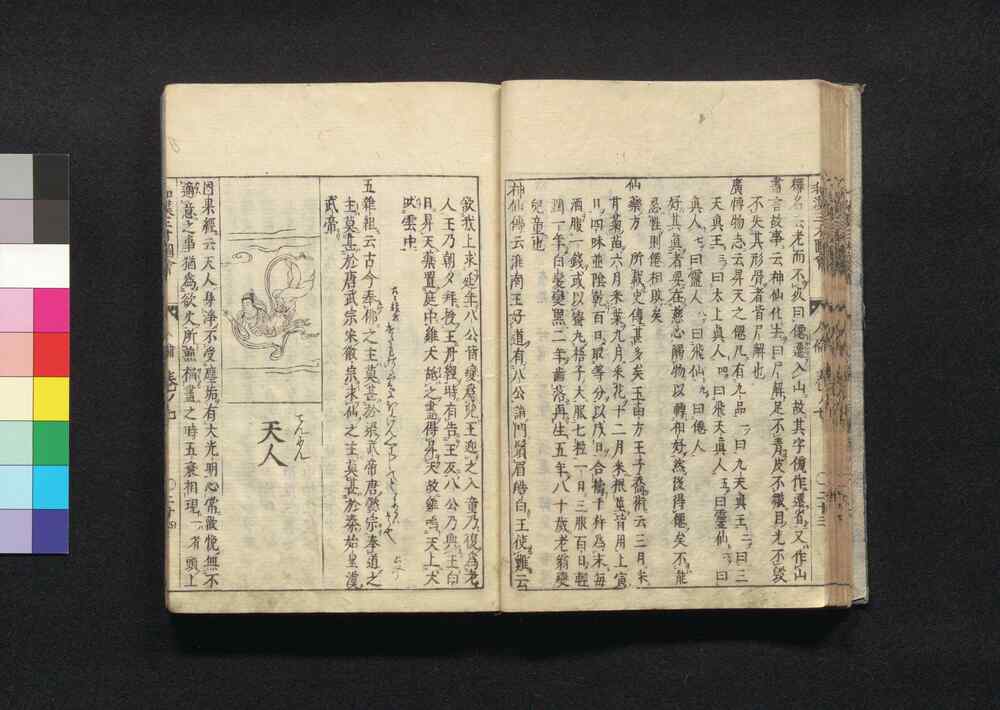 釋名云老而不死曰僊僊遷入山故其字僊作遷省又作山
書言故事云神仙化去曰尸解足不青皮不皺目光不毀
不失其形骨者皆尸解也
廣博物志云昇天之僊凡有九品一曰九天真王二曰三
天真王三曰太上真人四曰飛天真人五曰靈仙六曰
真人七曰靈人八曰飛仙九曰僊人
好其真者要在慈心觸物以轉和好然後得僊矣不能
忍性則僊相敗矣
仙藥方 所載史傳甚多矣玉函方王子喬術云三月采
甘菊苗六月采葉九月采花十二月采根莖皆用上寅
日四味並陰乾百日取等分以戊日合擣千杵為末每
酒服一錢或以蜜丸梧子大服七粒一日三服百日輕
潤一年白髮變黑二年齒落再生五年八十歲老翁變
兒童也
神仙傳云淮南王好道有八公詣門鬚眉皓白王使難云
欲我上求延年八公皆變為兒王迎之入童乃復為老
人王乃朝夕拜授王丹經時有告王反八公乃與王白
日昇天藥置庭中雞犬舐之盡得昇天故雞鳴天上犬
吠雲中
五雜組云古今奉佛之主莫甚於梁武帝唐懿宗奉道之
主莫甚於唐武宗宋徽宗求仙之主莫甚於秦始皇漢
武帝
てんにん
天人
因果經云天人身淨不受塵垢有大光明心常歡悅無不
適意之事猶為欲火所焦福盡之時五衰相現一者頭上